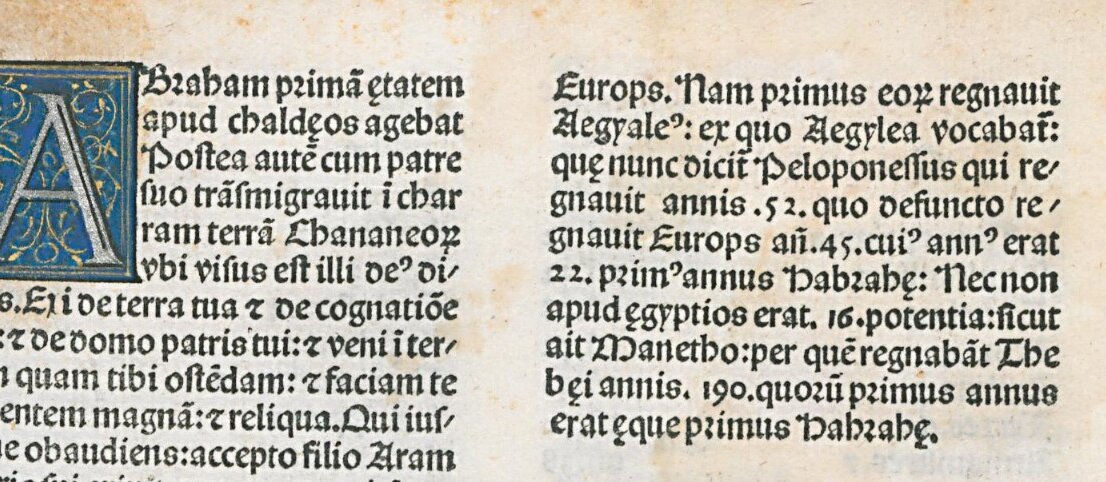 ABraham primã ętatem
apud chaldęos agebat
Postea autē cum patre
suo trãsmigrauit ī char
ram terrã Chananeoꝝ
vbi visus est illi deꝰ di⸗
s. Exi de terra tua ⁊ de cognatiõe
: ⁊ de domo patris tui: ⁊ veni ī ter⸗
quam tibi ostēdam: ⁊ faciam te
entem magnã: ⁊ reliqua. Qui ius⸗
obaudiens: accepto filio Aram
Europs. Nam primus eoꝝ regnauit
Aegyaleꝰ: ex quo Aegylea vocabat̃:
quę nunc dicit̃ Peloponessus qui re⸗
gnauit annis .52. quo defuncto re⸗
gnauit Europs añ.45. cuiꝰ annꝰ erat
22. primꝰ annus Habrahę: Nec non
apud ęgyptios erat. 16. potentia: sicut
ait Manetho: per quē regnabãt The
bęi annis. 190. quorũ primus annus
erat ęque primus Habrahę.